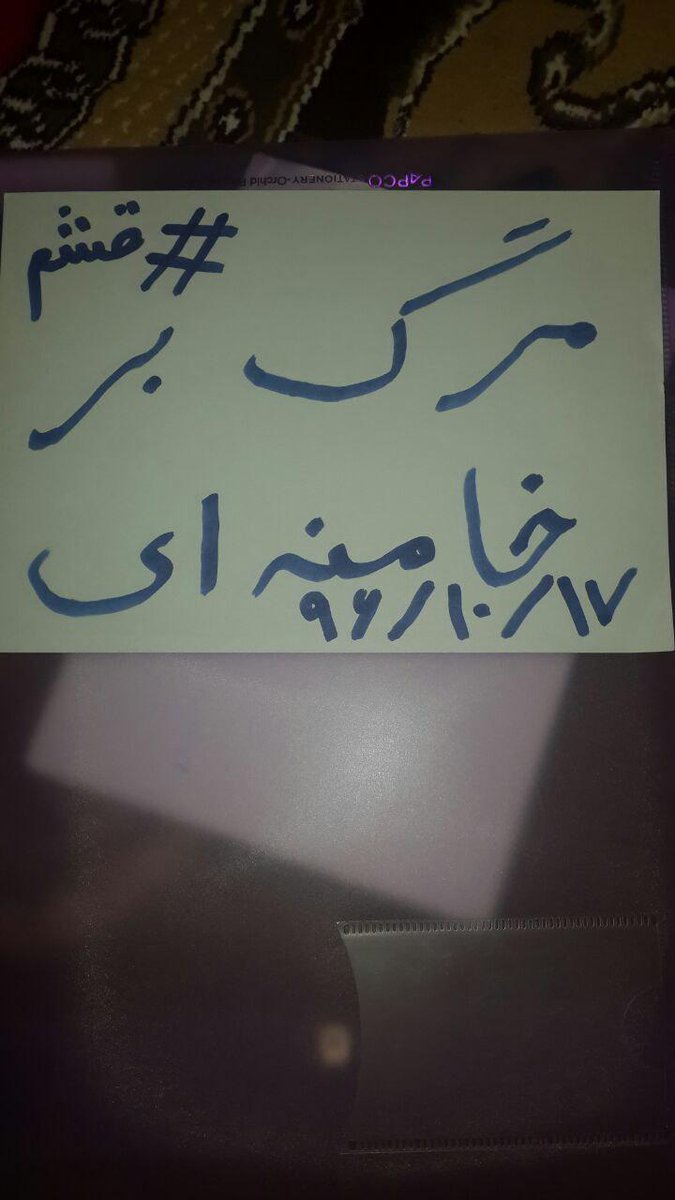 PAPCO STATIONERY-Orchid
#قشم
مرگ بر
خامنه ای
۹۶/۱۰/۱۷